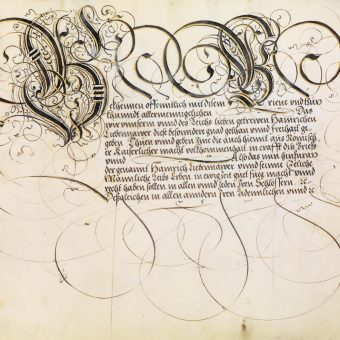 B B
ekennen offentlich mit disem Brieue vnd thun
khundt allermenigclichen Das
wir vnserm vnnd des Reichs lieben getrewen Hainrichen
dise besonder gnad gethan vnd freihait ge,
geben Thuen vnnd geben Jne die auch hiemit aus Römisch,
er Kaiserlicher macht volkhommenhait in crafft dits Briefs
vnnd Also das nun hinfüran
der genannt Hainrich vnnd seine Eeliche
Mannliche Leibs Erben in ewig zeit guet fueg macht vnnd
recht haben sollen in allen vnnd yeden Jren Schlossern. ec
Desgleichen in allen anndern Jren Adennlichen vnd ec